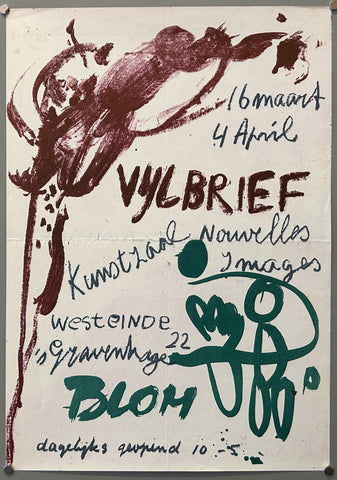 16 maart
4 April
VYLBRIEF
Kunstzaal Nouvelles
Images
Westeinde
22
's Gravenhage
BLOM
dagelijks geopend 10 - 5